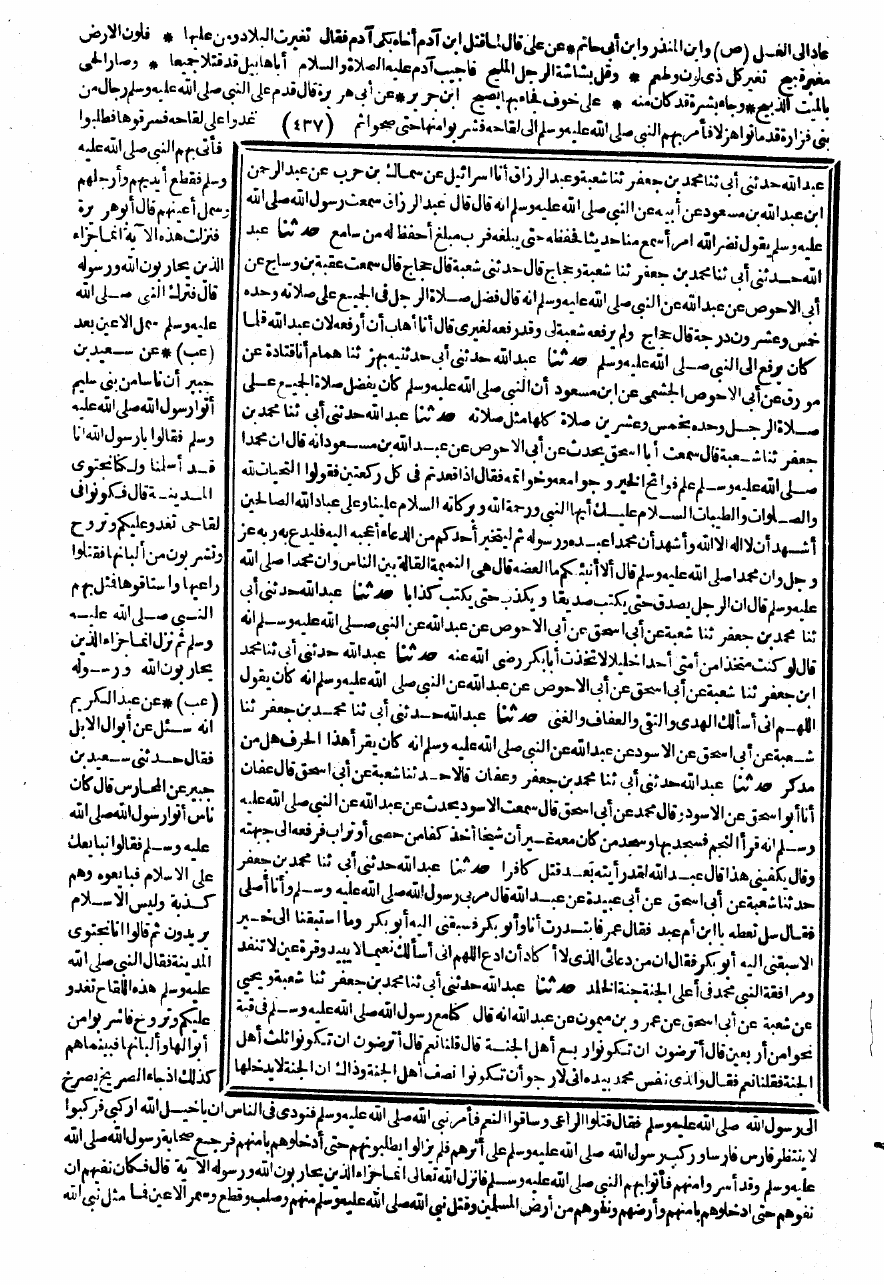 عاد الى الغسل (ص) وابن المنذر وابن أبي حاتم * عن على قال لما قتل ابن آدم أخاه بكى آدم فقال تغيرت البلاد ومن عليها * فلون الارض
مغبر قبيح تغير كل ذى لون وطعم * وقل بشاشة الرجل المليح فاجيب آدم عليه الصلاة والسلام أباهابيل قد قتلا جميعا * وصار الحى
بالميت الذبيح * وجاء بشرة قد كان منه * على خوف فجاء بها يصيح ابن جرير * عن أبي هريرة قال قدم على النبي صلى الله عليه وسلم رجال من
بني فزارة قد ماتوا هزلا فأمر بهم النبي صلى الله عليه وسلم الى لقاحه فشربوا منها حتى صحوا ثم (٤٣٧) غدوا على لقاحه فسرقوها فطلبوا
عبد الله حدثني أبي ثنا محمد بن جعفر ثنا شعبة وعبد الرزاق أنا اسرائيل عن سماك بن حرب عن عبد الرحمن
ابن عبد الله بن مسعود عن أبيه عن النبي صلى الله عليه وسلم انه قال قال عبد الرزاق سمعت رسول الله صلى الله
عليه وسلم يقول نضر الله امرأ سمع منا حديثا فحفظه حتى يبلغه فرب مبلغ أحفظ له من سامع حدثنا عبد
الله حدثني أبي ثنا محمد بن جعفر ثنا شعبة وحجاج قال حدثني شعبة قال حجاج قال سمعت عقبة بن وساج عن
أبي الاحوص عن عبد الله عن النبي صلى الله عليه وسلم انه قال فضل صلاة الرجل في الجميع على صلاته وحده
خمس وعشرون درجة قال حجاج ولم يرفعه شعبة لى وقد رفعه لغيرى قال أنا أهاب أن أرفعه لان عبد الله قلما
كان يرفع الى النبي صلى الله عليه وسلم حدثنا عبد الله حدثني أبي حدثنيه بهز ثنا همام أنا قتادة عن
مورق عن أبي الاحوص الجشمى عن ابن مسعود أن النبي صلى الله عليه وسلم كان يفضل صلاة الجميع على
صلاة الرجل وحده بخمس وعشرين صلاة كلها مثل صلاته حدثنا عبد الله حدثني أبي ثنا محمد بن
جعفر ثنا شعبة قال سمعت أبا اسحق يحدث عن أبي الاحوص عن عبد الله بن مسعود انه قال ان محمدا
صلى الله عليه وسلم علم فواتح الخير وجوامعه وخواتمه فقال اذا قعدتم في كل ركعتين فقولوا التحيات لله
والصلوات والطيبات السلام عليك أيها النبي ورحمة الله وبركاته السلام علينا وعلى عباد الله الصالحين
أشهد أن لا اله الا الله وأشهد أن محمدا عبده ورسوله ثم ليتخير أحدكم من الدعاء أعجبه اليه فليدع به ربه عز
وجل وان محمدا صلى الله عليه وسلم قال ألا أنبئكم ما العضه قال هى النميمة القالة بين الناس وان محمدا صلى الله
عليه وسلم قال ان الرجل يصدق حتى يكتب صديقا ويكذب حتى يكتب كذابا حدثنا عبد الله حدثني أبي
ثنا محمد بن جعفر ثنا شعبة عن أبي اسحق عن أبي الاحوص عن عبد الله عن النبي صلى الله عليه وسلم انه
قال لو كنت متخذا من أمتى أحدا خليلا لاتخذت أبا بكر رضى الله عنه حدثنا عبد الله حدثني أبي ثنا محمد
ابن جعفر ثنا شعبة عن أبي اسحق عن أبي الاحوص عن عبد الله عن النبي صلى الله عليه وسلم انه كان يقول
اللهم انى أسألك الهدى والتقى والعفاف والغنى حدثنا عبد الله حدثني أبي ثنا محمد بن جعفر ثنا
شعبة عن أبي اسحق عن الاسود عن عبد الله عن النبي صلى الله عليه وسلم انه كان يقرأ هذا الحرف هل من
مدكر حدثنا عبد الله حدثني أبي ثنا محمد بن جعفر وعفان قالا حدثنا شعبة عن أبي اسحق قال عفان
أنا أبو اسحق عن الاسود وقال محمد عن أبي اسحق قال سمعت الاسود يحدث عن عبد الله عن النبي صلى الله عليه
وسلم انه قرأ النجم فسجد بها وسجد من كان معه غير أن شيخا أخذ كفا من حصى أو تراب فرفعه الى جبهته
وقال يكفينى هذا قال عبد الله لقد رأيته بعد قتل كافرا حدثنا عبد الله حدثني أبي ثنا محمد بن جعفر
حدثنا شعبة عن أبي اسحق عن أبي عبيدة عن عبد الله قال مر بى رسول الله صلى الله عليه وسلم وأنا أصلى
فقال سل تعطه يا ابن أم عبد فقال عمر فابتدرت أنا وأبو بكر فسبقنى اليه أبو بكر وما استبقنا الى خير
الا سبقنى اليه أبو بكر فقال ان من دعائى الذى لا أكاد أن ادع اللهم انى أسألك نعيما لا يبيد وقرة عين لا تنفد
ومرافقة النبي محمد في أعلى الجنة جنة الخلد حدثنا عبد الله حدثني أبي ثنا محمد بن جعفر ثنا شعبة ويحيى
عن شعبة عن أبي اسحق عن عمرو بن ميمون عن عبد الله انه قال كنا مع رسول الله صلى الله عليه وسلم في قبة
نحوا من أربعين قال أترضون ان تكونوا ربع أهل الجنة قال قلنا نعم قال أترضون ان تكونوا ثلث أهل
الجنة فقلنا نعم فقال والذى نفس محمد بيده انى لارجو أن تكونوا نصف أهل الجنة وذاك ان الجنة لا يدخلها
فأتى بهم النبي صلى الله عليه
وسلم فقطع أيديهم وأرجلهم
وسمل أعينهم قال أبو هريرة
فنزلت هذه الآية انما جزاء
الذين يحاربون الله ورسوله
قال فترك النبي صلى الله
عليه وسلم سمل الاعين بعد
(عب) * عن سعيد بن
جبير أن ناسا من بنى سليم
أتوا رسول الله صلى الله عليه
وسلم فقالوا يا رسول الله انا
قد أسلمنا ولكنا نجتوى
المدينة قال فكونوا فى
لقاحى تغدو عليكم وتروح
وتشربون من ألبانها فقتلوا
راعيها واستاقوها فمثل بهم
النبي صلى الله عليه
وسلم ثم نزل انما جزاء الذين
يحاربون الله ورسوله
(عب) * عن عبد الكريم
انه سئل عن أبوال الابل
فقال حدثني سعيد بن
جبير عن المحاربين قال كان
ناس أتوا رسول الله صلى الله
عليه وسلم فقالوا نبايعك
على الاسلام فبايعوه وهم
كذبة وليس الاسلام
يريدون ثم قالوا انا نجتوى
المدينة فقال النبي صلى الله
عليه وسلم هذه اللقاح تغدو
عليكم وتروح فاشربوا من
أبوالها وألبانها فبينما هم
كذلك اذ جاء الصريخ يصرخ
الى رسول الله صلى الله عليه وسلم فقال قتلوا الراعى وساقوا النعم فأمر نبي الله صلى الله عليه وسلم فنودى في الناس ان يا خيل الله اركبى فركبوا
لا ينتظر فارس فارسا وركب رسول الله صلى الله عليه وسلم على أثرهم فلم يزالوا يطلبونهم حتى أدخلوهم مأمنهم فرجع صحابة رسول الله صلى الله
عليه وسلم وقد أسروا منهم فأتوا بهم النبي صلى الله عليه وسلم فانزل الله تعالى انما جزاء الذين يحاربون الله ورسوله الآية قال فكان نفيهم ان
نفوهم حتى ادخلوهم مأمنهم وأرضهم ونفوهم من أرض المسلمين وقتل نبي الله صلى الله عليه وسلم منهم وصلب وقطع وسمر الاعين فما مثل نبي الله